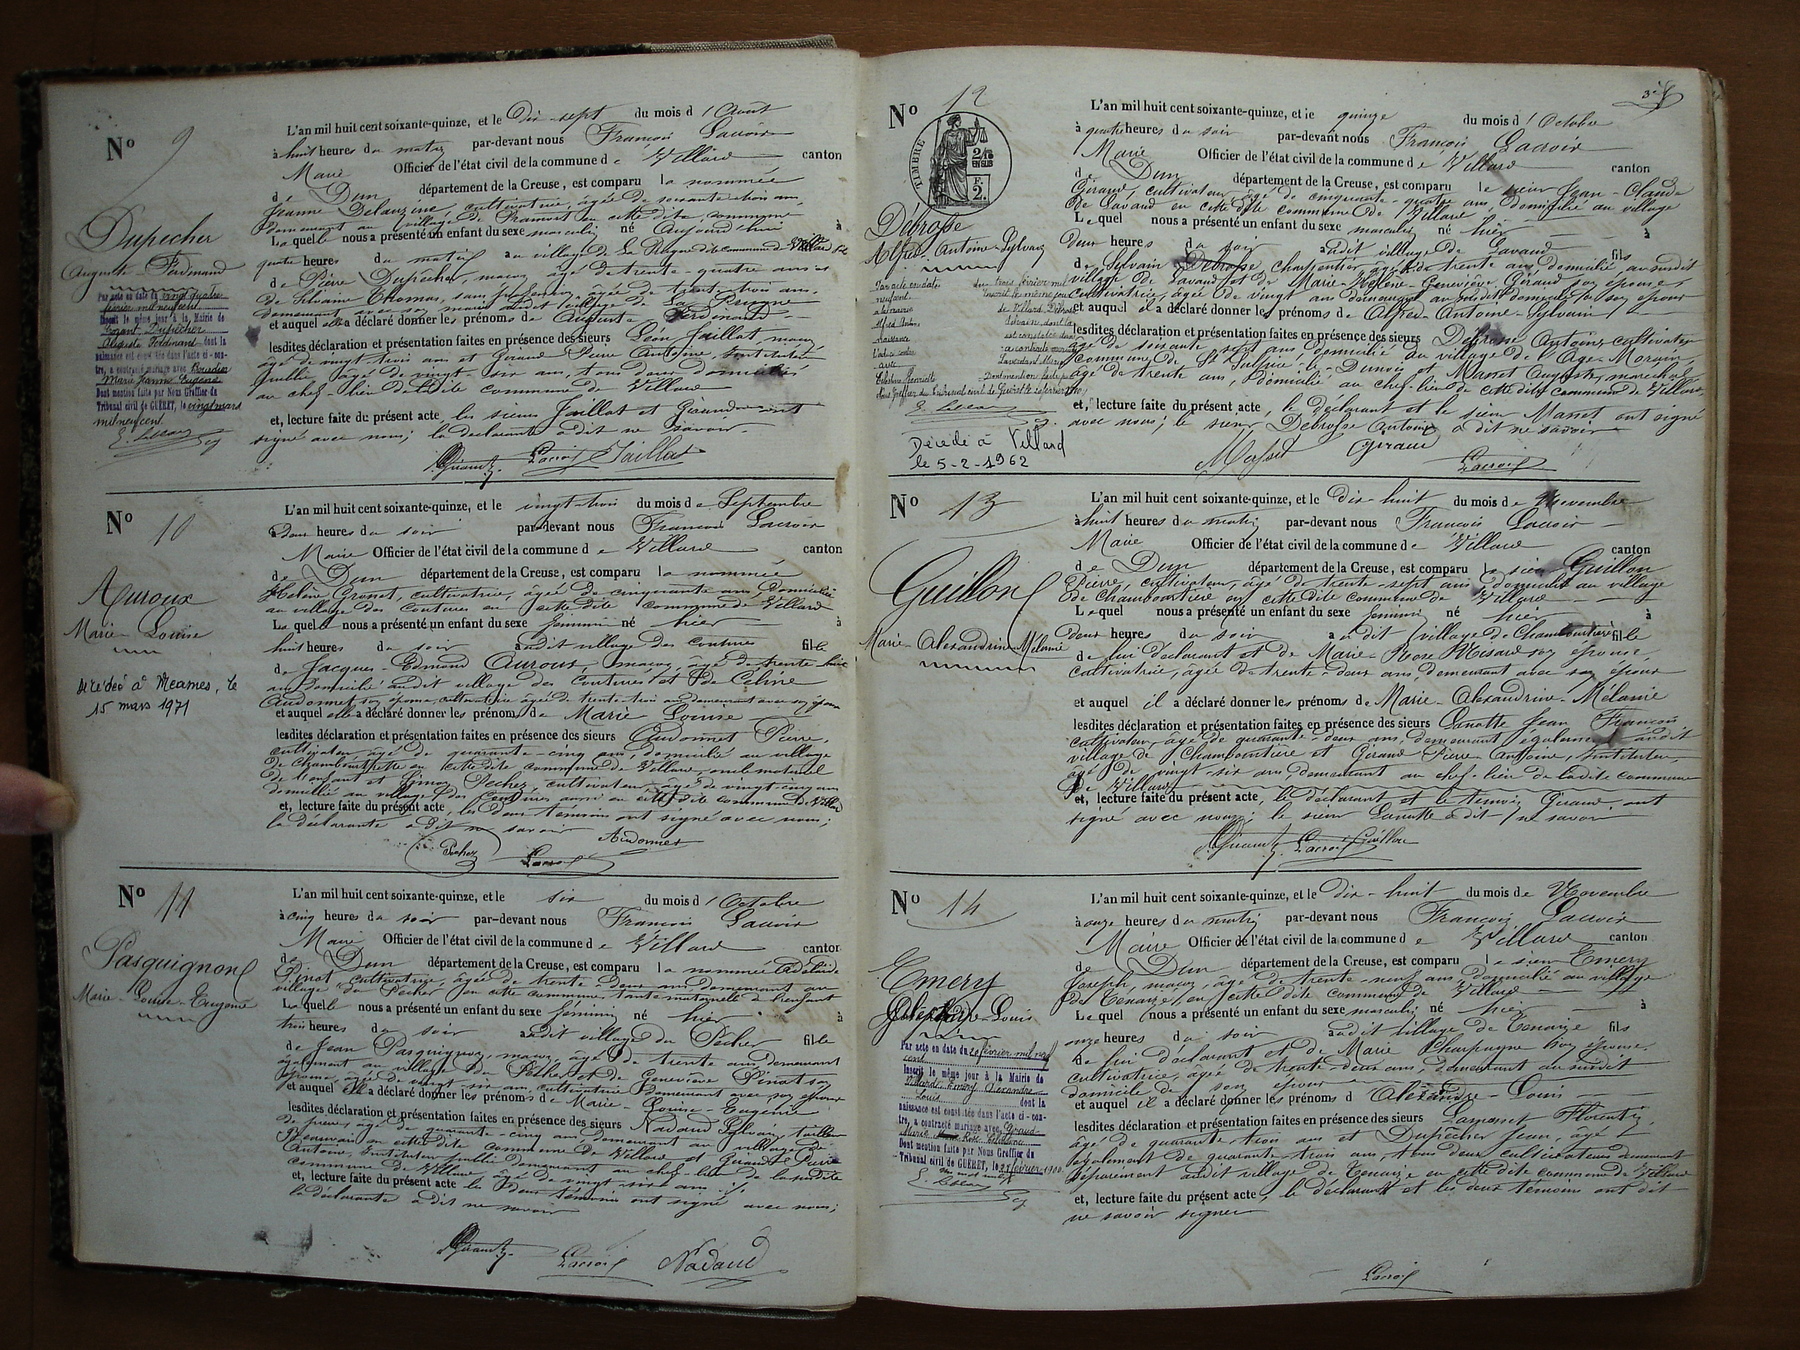 Nº 9
Dupecher
Auguste-Ferdinand
Par acte en date du vingt quatre
février mil neuf cent
Inscrit le même jour à la Mairie de
Dupêcher
Auguste Ferdinand dont la
naissance est constatée dans l'acte ci-con-
tre, a contracté mariage avec
Marie Jeanne Eugénie
Dont mention faite par Nous Greffier du
Tribunal civil de GUÉRET, le vingt mars
mil neuf cent
L'an mil huit cent soixante-quinze, et le Dix-sept du mois d'Août
à huit heures du matin par-devant nous François Lacroix
Maire Officier de l'état civil de la commune de Villard canton
de Dun département de la Creuse, est comparu la nommée
Jeanne Delauzine, cultivatrice, âgée de soixante trois ans,
demeurant au village de en cette dite commune
Laquelle nous a présenté un enfant du sexe masculin né Aujourd'hui à
quatre heures du matin au village de La dite commune de Villard fils
de Pierre Dupêcher, maçon, âgé de trente-quatre ans et
de Silvaine Thomas, sans profession, âgée de trente-trois ans,
demeurant avec son mari audit village de La
et auquel elle a déclaré donner les prénoms de Auguste Ferdinand
lesdites déclaration et présentation faites en présence des sieurs Léon Jaillot maçon
âgé de vingt trois ans et Giraud Pierre Antoine, instituteur
public âgé de vingt-six ans, tous deux domiciliés
au chef-lieu de ladite commune de Villard
et, lecture faite du présent acte, les sieurs Jaillot et Giraud ont
signé avec nous; la déclarante a dit ne savoir
Giraud Lacroix Jaillot
Nº 10
Auroux
Marie-Louise
Décédée à Méasnes, le
15 mars 1971
L'an mil huit cent soixante-quinze, et le vingt-trois du mois de Septembre
à deux heures du soir par-devant nous François Lacroix
Maire Officier de l'état civil de la commune de Villard canton
de Dun département de la Creuse, est comparu la nommée
Hélène cultivatrice, âgée de cinquante ans, domiciliée
au village des Coutures en cette dite commune de Villard
Laquelle nous a présenté un enfant du sexe féminin né hier à
huit heures du soir audit village des Coutures fille
de Jacques-Edmond Auroux, maçon, âgé de trente-huit
ans domicilié audit village des Coutures et de Céline
Audonnet son épouse, cultivatrice âgée de trente-trois ans demeurant avec son époux
et auquel elle a déclaré donner les prénoms de Marie Louise
lesdites déclaration et présentation faites en présence des sieurs Audonnet Pierre,
cultivateur, âgé de quarante-cinq ans, domicilié au village
de en cette dite commune de Villard, oncle maternel
de l'enfant et Pechez, cultivateur, âgé de vingt-cinq ans
domicilié au village des Coutures aussi en cette dite commune de Villard
et, lecture faite du présent acte, les deux témoins ont signé avec nous;
la déclarante a dit ne savoir
Pechez Lacroix Audonnet
Nº 11
Pasquignon
Marie-Louise-Eugénie
L'an mil huit cent soixante-quinze, et le six du mois d'Octobre
à cinq heures du soir par-devant nous François Lacroix
Maire Officier de l'état civil de la commune de Villard canton
de Dun département de la Creuse, est comparu la nommée Adélaïde
Pinot cultivatrice, âgée de trente-deux ans demeurant au
village du Pêcher en cette commune, tante maternelle de l'enfant
Laquelle nous a présenté un enfant du sexe féminin né hier à
trois heures du soir audit village du Pêcher fille
de Jean Pasquignon, maçon, âgé de trente ans, demeurant
également au village du Pêcher et de Geneviève Pinot son
épouse âgée de vingt six ans, cultivatrice demeurant avec son époux
et auquel elle a déclaré donner les prénoms de Marie-Louise-Eugénie
lesdites déclaration et présentation faites en présence des sieurs Nadaud Sylvain, tailleur
de pierres âgé de quarante-cinq ans, demeurant au village de
Beauvais en cette dite commune de Villard et Giraud Pierre
Antoine, instituteur public demeurant au chef-lieu de la susdite
commune de Villard âgé de vingt-six ans
et, lecture faite du présent acte les deux témoins ont signé avec nous;
la déclarante a dit ne savoir
Giraud Lacroix Nadaud
3e
Nº 12
TIMBRE
2/10 EN SUS
F. 2.
Debrosse
Alfred-Antoine-Sylvain
Décédé à Villard
le 5-2-1962
L'an mil huit cent soixante-quinze, et le quinze du mois d'Octobre
à quatre heures du soir par-devant nous François Lacroix
Maire Officier de l'état civil de la commune de Villard canton
de Dun département de la Creuse, est comparu le sieur Jean-Claude
Giraud, cultivateur, âgé de cinquante-quatre ans, domicilié au village
de Lavaud en cette dite commune de Villard
Lequel nous a présenté un enfant du sexe masculin né hier à
deux heures du soir audit village de Lavaud fils
de Sylvain Debrosse charpentier âgé de trente ans domicilié au susdit
village de Lavaud et de Marie-Hélène-Geneviève Giraud son épouse
cultivatrice, âgée de vingt ans demeurant au susdit domicile de son époux
et auquel il a déclaré donner les prénoms de Alfred-Antoine-Sylvain
lesdites déclaration et présentation faites en présence des sieurs Debrosse Antoine cultivateur
âgé de soixante sept ans, domicilié au village de l'Age-Morain,
commune de St Sulpice-le-Dunois et Masset Auguste, maréchal,
âgé de trente ans, domicilié au chef-lieu de cette dite commune de Villard
et, lecture faite du présent acte, le déclarant et le sieur Masset ont signé
avec nous; le sieur Debrosse Antoine a dit ne savoir
Masset Giraud Lacroix
Nº 13
Guillon
Marie-Alexandrine-Mélanie
L'an mil huit cent soixante-quinze, et le dix-huit du mois de Novembre
à huit heures du matin par-devant nous François Lacroix
Maire Officier de l'état civil de la commune de Villard canton
de Dun département de la Creuse, est comparu le sieur Guillon
Pierre, cultivateur, âgé de trente-sept ans domicilié au village
de Chamboartière en cette dite commune de Villard
Lequel nous a présenté un enfant du sexe féminin né hier à
deux heures du soir audit village de Chamboartière fille
de lui déclarant et de Marie-Rose Misard son épouse,
cultivatrice, âgée de trente-deux ans, demeurant avec son époux
et auquel il a déclaré donner les prénoms de Marie-Alexandrine-Mélanie
lesdites déclaration et présentation faites en présence des sieurs Lanotte Jean François,
cultivateur, âgé de quarante-deux ans, demeurant également audit
village de Chamboartière et Giraud-Pierre-Antoine, instituteur,
âgé de vingt-six ans demeurant au chef-lieu de ladite commune
de Villard
et, lecture faite du présent acte, le déclarant et le témoin Giraud, ont
signé avec nous; le sieur Lanotte a dit ne savoir
Giraud Lacroix Guillon
Nº 14
Emery
Alexandre-Louis
Par acte en date du 20 février mil neuf
cent
Inscrit le même jour à la Mairie de
Villard Emery Alexandre
Louis dont la
naissance est constatée dans l'acte ci-con-
tre, a contracté mariage avec Giraud
Marie Rose
Dont mention faite par Nous Greffier du
Tribunal civil de GUÉRET, le février 1900
L'an mil huit cent soixante-quinze, et le dix-huit du mois de Novembre
à onze heures du matin par-devant nous François Lacroix
Maire Officier de l'état civil de la commune de Villard canton
de Dun département de la Creuse, est comparu le sieur Emery
Joseph, maçon, âgé de trente-neuf ans domicilié au village
de Tenaize, en cette dite commune de Villard
Lequel nous a présenté un enfant du sexe masculin né hier à
onze heures du soir audit village de Tenaize fils
de lui déclarant et de Marie Champagne son épouse
cultivatrice, âgée de trente-deux ans, demeurant au susdit
domicile de son époux
et auquel il a déclaré donner les prénoms d'Alexandre-Louis
lesdites déclaration et présentation faites en présence des sieurs Lamasset Florentin
âgé de quarante trois ans et Dupêcher Jean, âgé
également de quarante-trois ans, tous deux cultivateurs demeurant
séparément audit village de Tenaize en cette dite commune de Villard
et, lecture faite du présent acte, le déclarant et les deux témoins ont dit
ne savoir signer
Lacroix